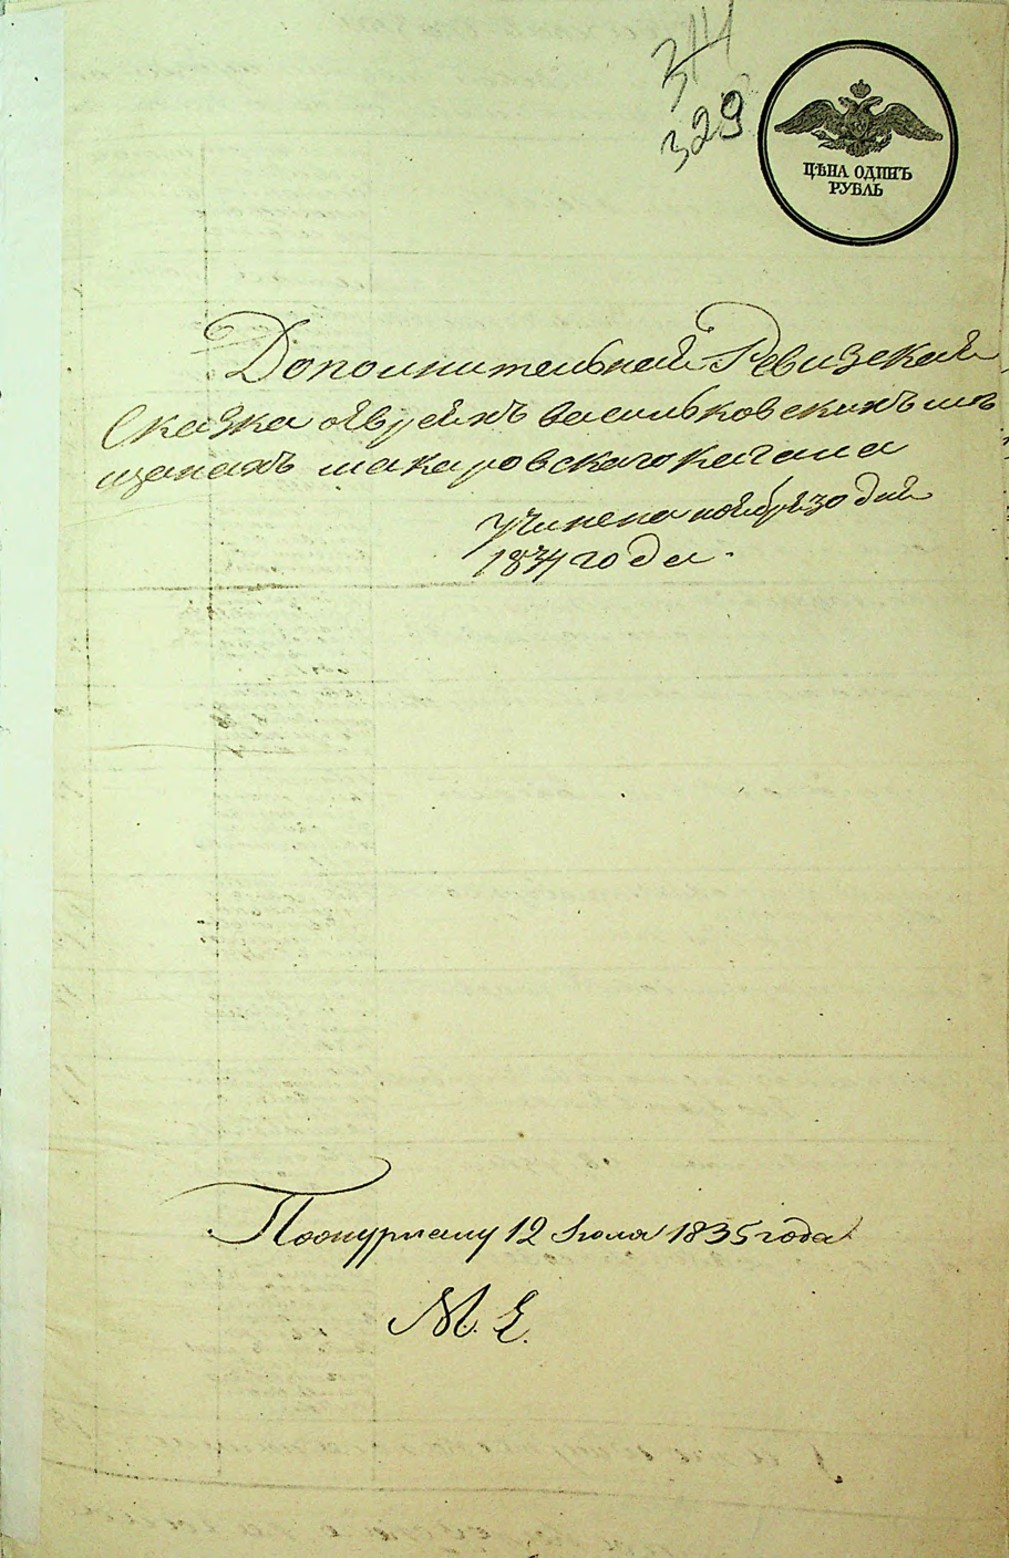 311
329
ЦѢНА ОДИНЪ
РУБЛЬ
Дополнительная Ревизская
Сказка оѣвреяхъ васильковскихъ мѣ
щанахъ макаровского кагала
учинена ноября 30 дня
1834 года.
12 Іюля 1835 года
М. Е.